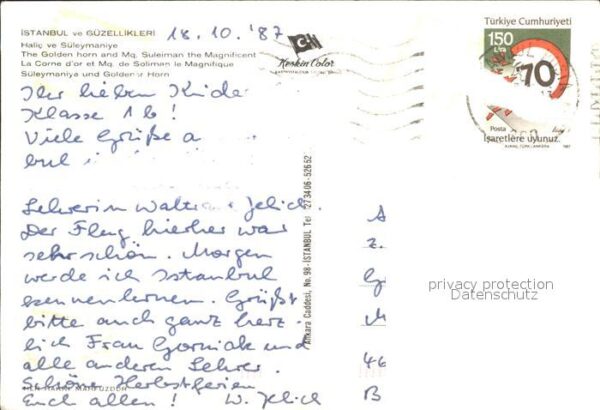 İSTANBUL ve GÜZELLİKLERİ
18.10.'87
Haliç ve Süleymaniye
The Golden horn and Mq. Suleiman the Magnificent
La Corne d'or et Mq. de Soliman le Magnifique
Süleymaniye und Golden Horn
Keskin Color
Türkiye Cumhuriyeti
150
LİRA
70
Posta
İşaretlere uyunuz.
1987
Ihr lieben Kinde
Klasse 1b!
Viele Grüße a
bul
Lehrerin Waltr Jelich.
Der Flug hierher war
sehr schön. Morgen
werde ich Istanbul
kennenlernen. Grüßt
bitte auch ganz herz-
lich Frau Gorniak und
alle anderen Lehrer.
Schöne Herbstferien
Euch allen! W. Jelich
Ankara Caddesi, No. 98-İSTANBUL Tel: 273406-52652
A
z.
G
M
46
B
privacy protection
Datenschutz
HER HAKKI MAHFUZDUR